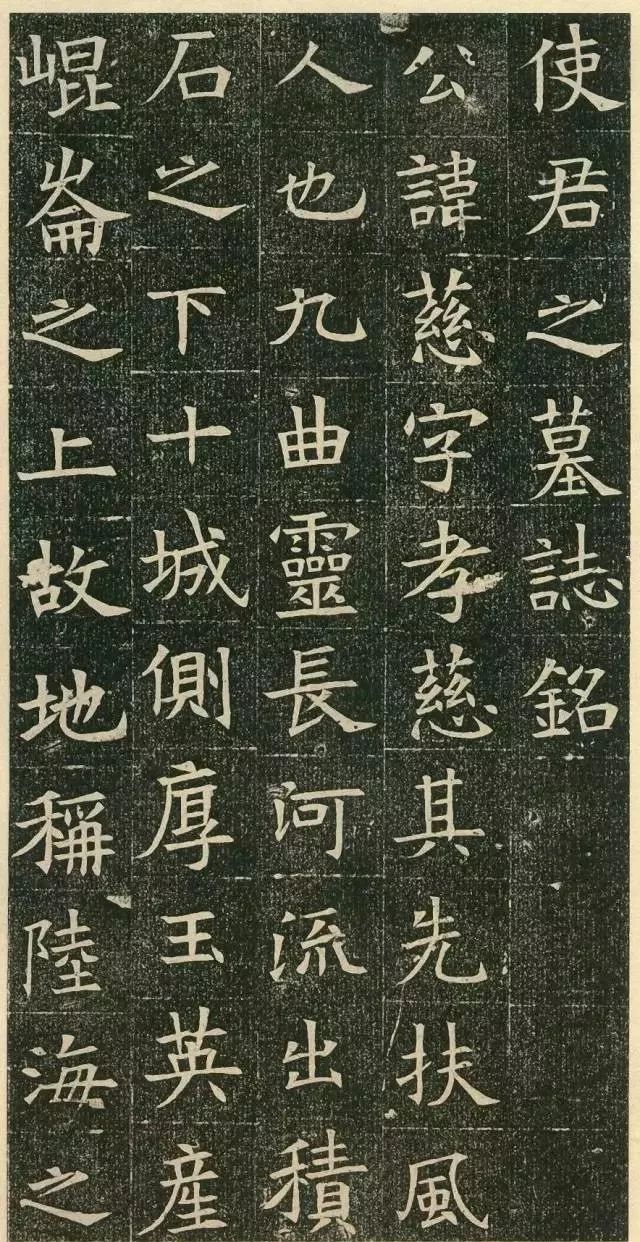 使君之墓誌銘
公諱慈字孝慈其先扶風
人也九曲靈長河流出積
石之下十城側厚玉英産
崐崘之上故地稱陸海之